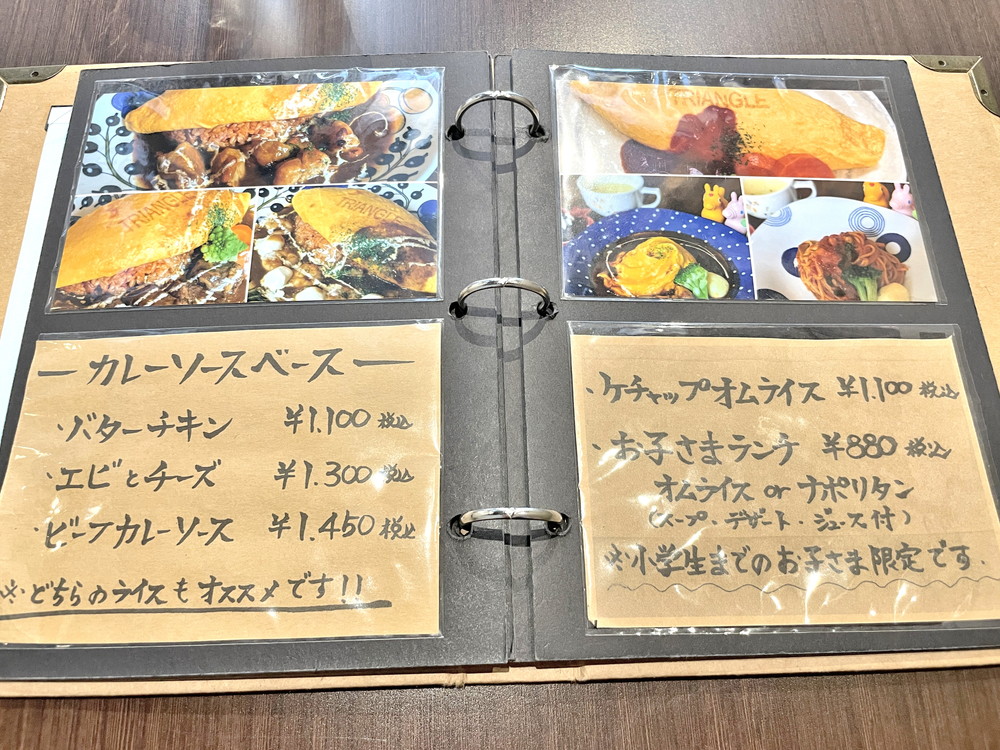 TRIANGLE
TRIANGLE
TRIANGLE
ーカレーソースベースー
・バターチキン ¥1.100税込
・エビとチーズ ¥1.300税込
・ビーフカレーソース ¥1.450税込
※どちらのライスもオススメです!!
・ケチャップオムライス ¥1.100税込
・お子さまランチ ¥880税込
オムライス or ナポリタン
(スープ・デザート・ジュース付)
※小学生までのお子さま限定です.